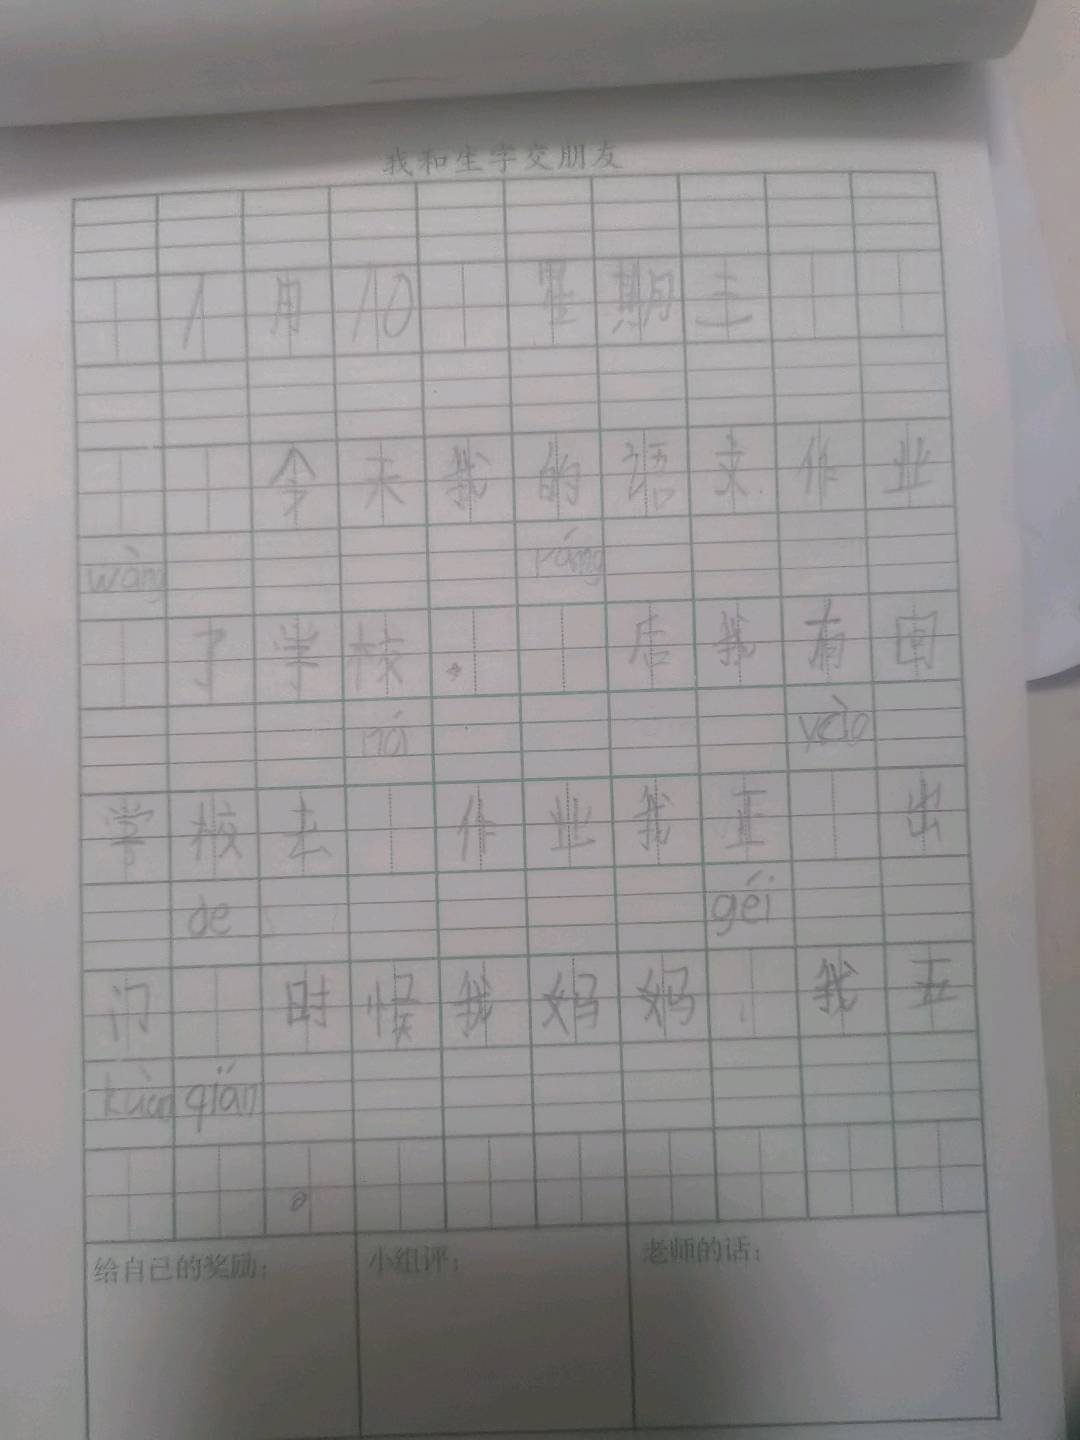 我和生字交朋友
1月10 星期三
今天我的语文作业
wàng ráng
了学校。 后我有回
ná yào
学校去 作业我正 出
de géi
门 时候我妈妈 我五
kuàn qián
。
给自己的奖励： 小组评： 老师的话：